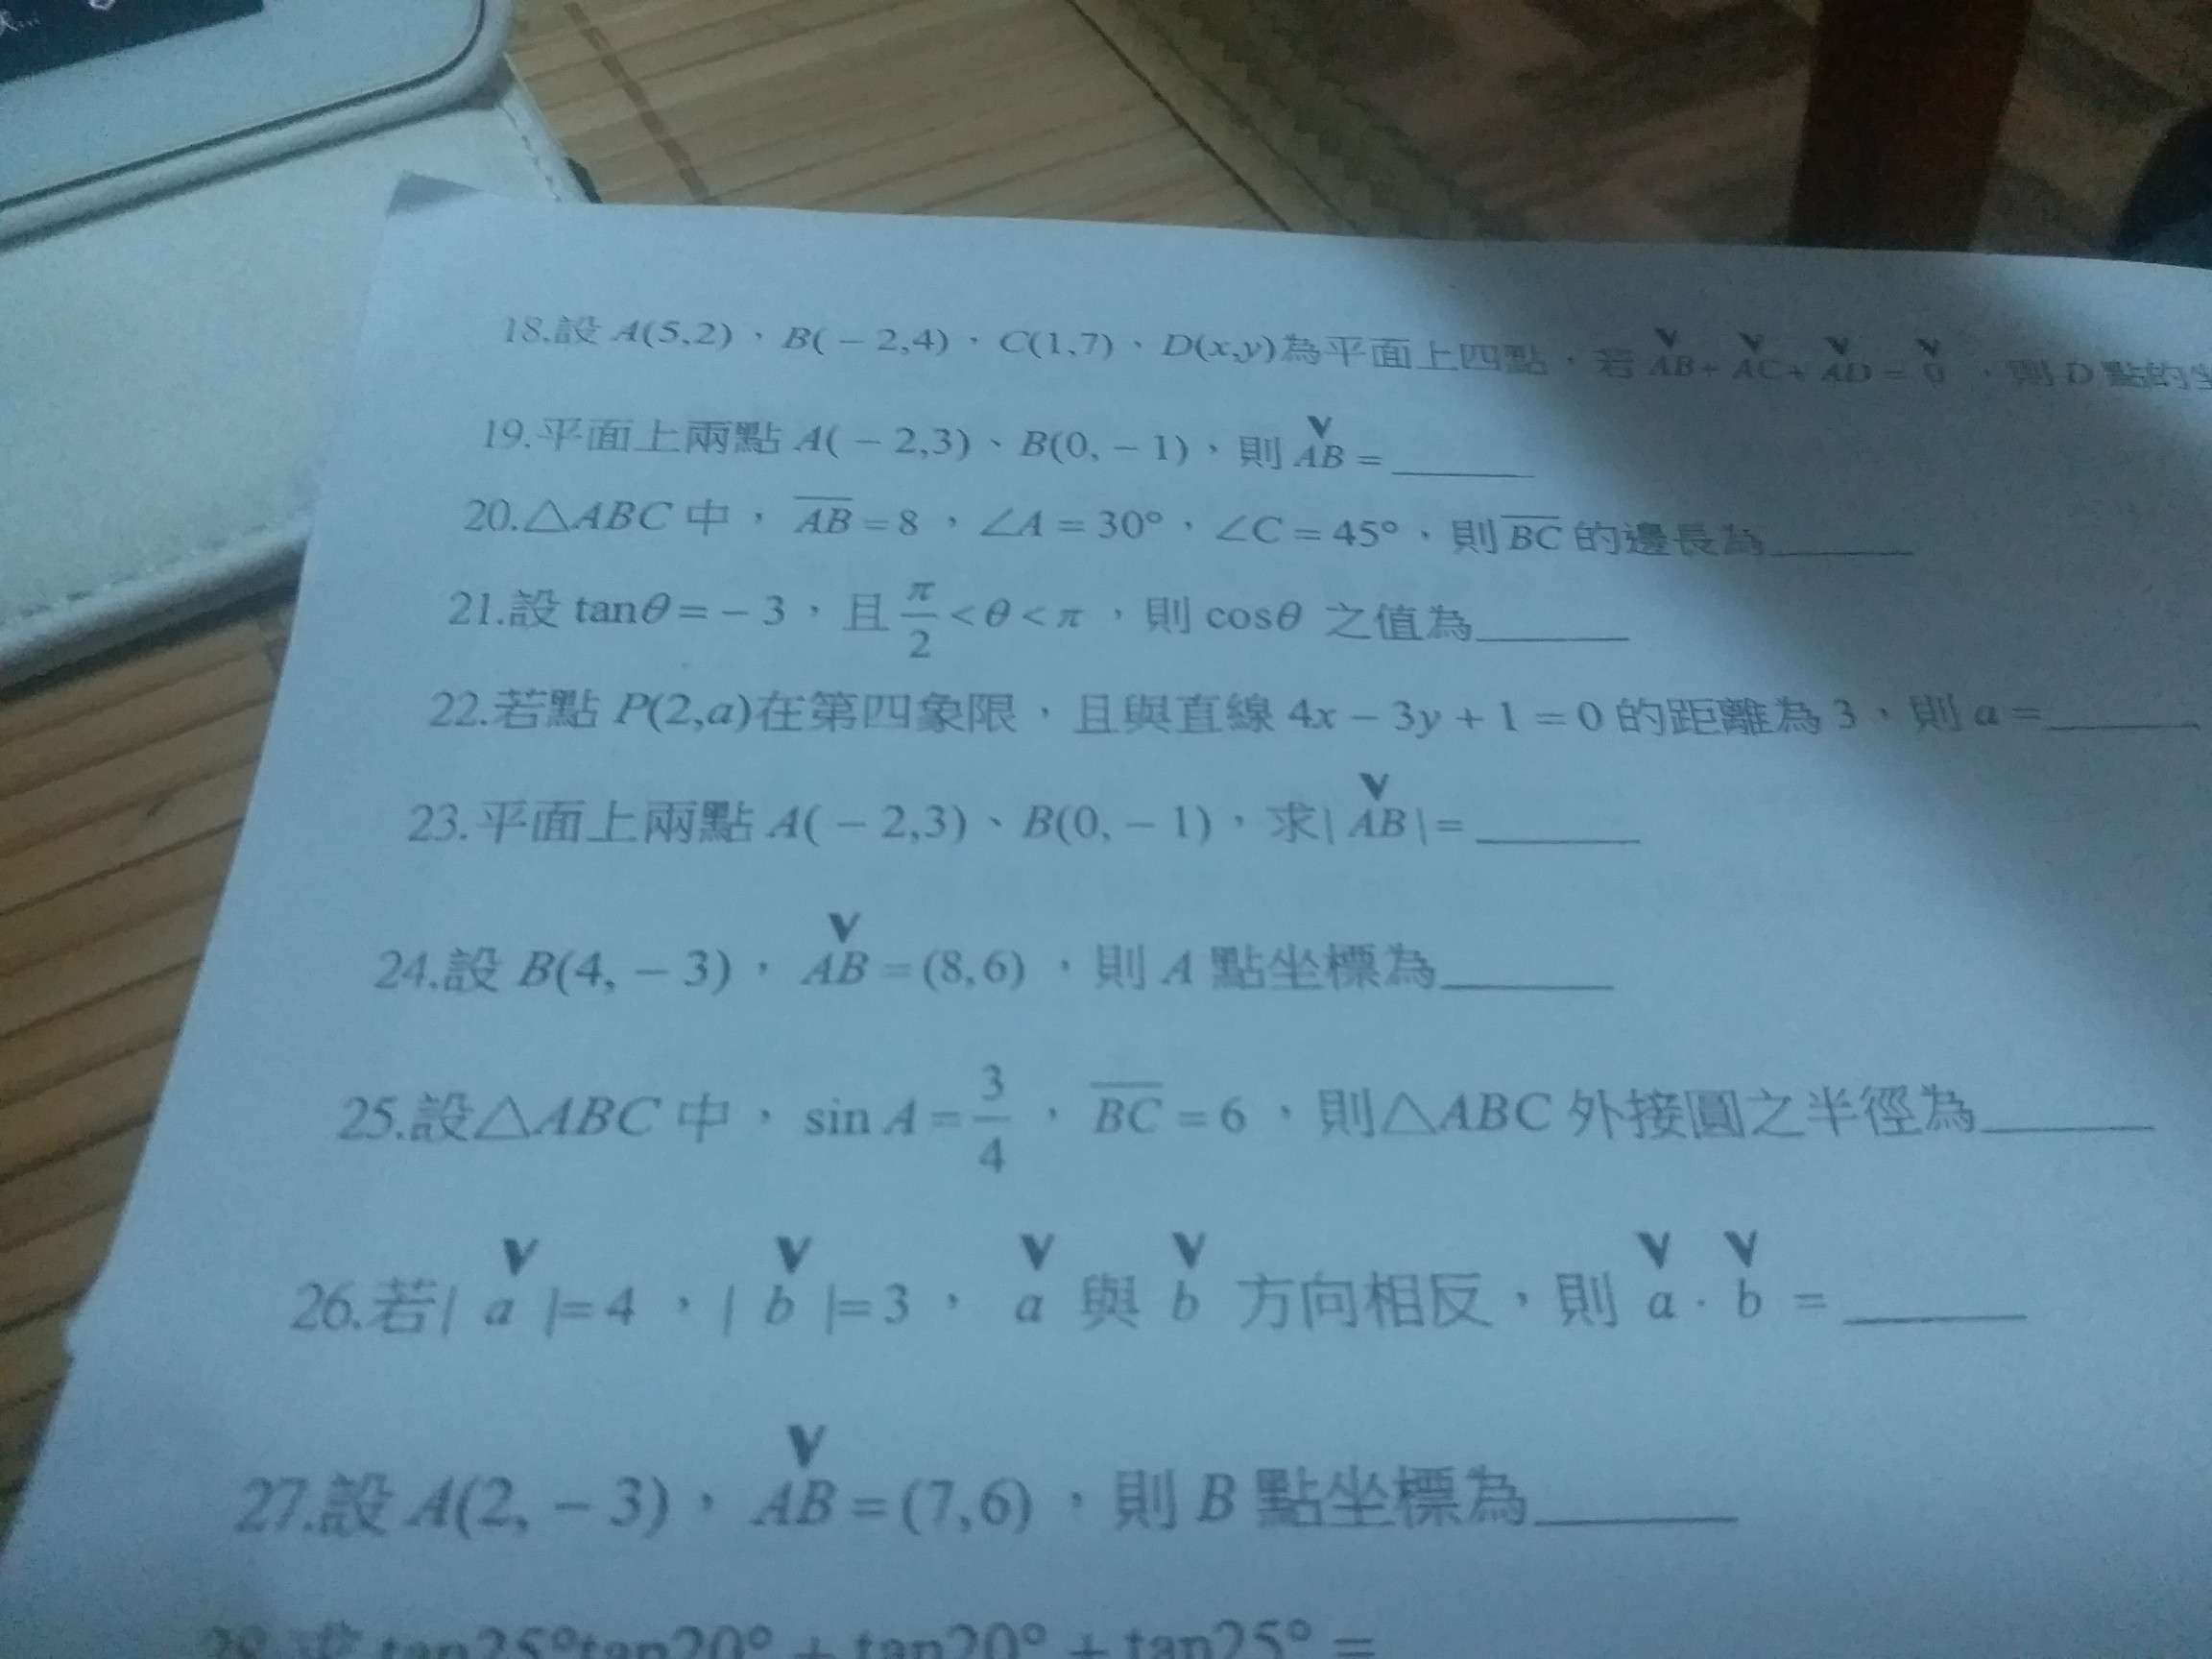 18.設 A(5,2)、B(－2,4)、C(1,7)、D(x,y)為平面上四點，若 AB + AC + AD = 0 ，則 D 點的
19.平面上兩點 A(－2,3)、B(0,－1)，則 AB =______
20.△ABC 中， AB = 8 ，∠A = 30°，∠C = 45°，則 BC 的邊長為______
21.設 tanθ = －3，且 π/2 < θ < π ，則 cosθ 之值為______
22.若點 P(2,a)在第四象限，且與直線 4x－3y＋1＝0 的距離為 3，則 a =______
23.平面上兩點 A(－2,3)、B(0,－1)，求| AB |=______
24.設 B(4,－3)， AB = (8,6) ，則 A 點坐標為______
25.設△ABC 中，sin A = 3/4 ， BC = 6 ，則△ABC 外接圓之半徑為______
26.若| a |= 4 ，| b |= 3 ， a 與 b 方向相反，則 a · b = ______
27.設 A(2,－3)， AB = (7,6) ，則 B 點坐標為______
28.求 tan25°tan20° + tan20° + tan25° =